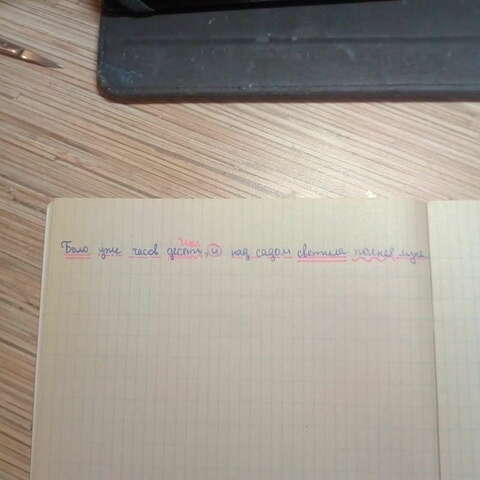 числ.
Было уже часов десять, и над садом светила полная луна.